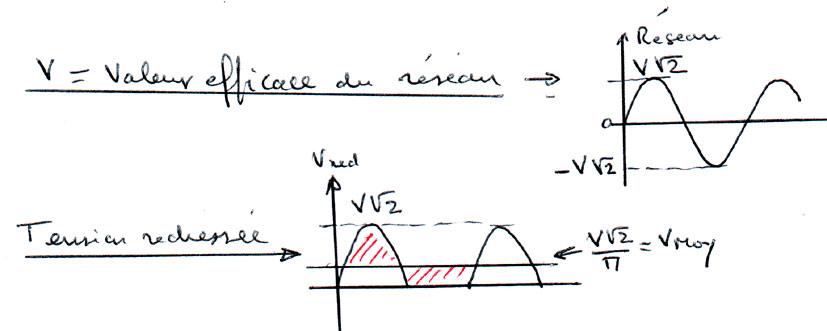 Réseau
V = Valeur efficace du réseau →
V√2
0
-V√2
Vred
V√2
Tension redressée
V√2/π = Vmoy